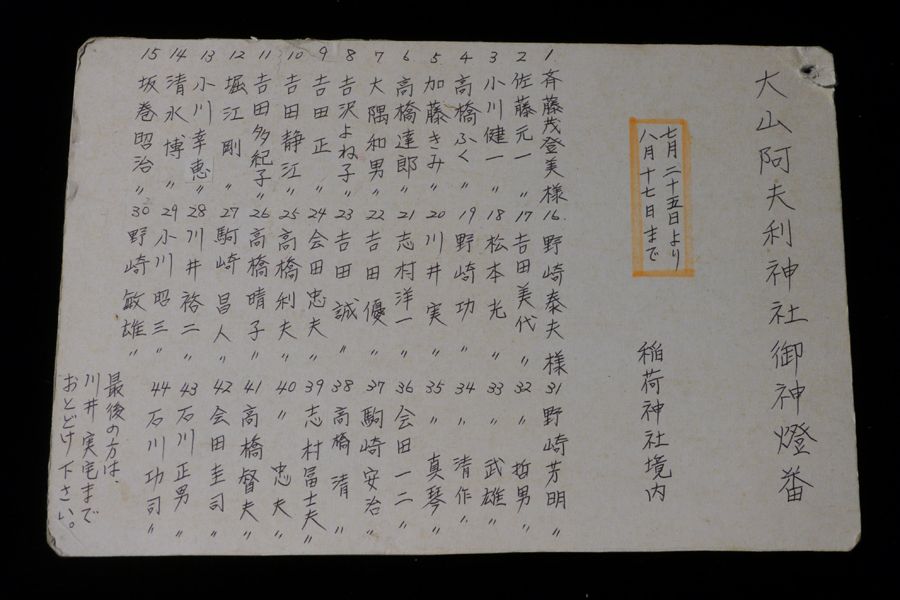 大山阿夫利神社御神燈番
七月二十五日より
八月十七日まで
稲荷神社境内
1 斉藤茂登美様
2 佐藤元一〃
3 小川健一〃
4 高橋ふく〃
5 加藤きみ〃
6 高橋達郎〃
7 大隅和男〃
8 吉沢よね子〃
9 吉田正〃
10 吉田静江〃
11 吉田多紀子〃
12 堀江剛〃
13 小川幸恵〃
14 清水博〃
15 坂巻昭治〃
16. 野崎泰夫様
17 吉田美代〃
18 松本光〃
19 野崎功〃
20 川井実〃
21 志村洋一〃
22 吉田優〃
23 吉田誠〃
24 会田忠夫〃
25 高橋利夫〃
26 高橋晴子〃
27 駒崎昌人〃
28 川井裕二〃
29 小川昭三〃
30 野崎敏雄〃
31 野崎芳明〃
32 〃哲男〃
33 〃武雄〃
34 〃清作〃
35 〃真琴〃
36 会田一二〃
37 駒崎安治〃
38 高橋清〃
39 志村冨士夫〃
40 〃忠夫〃
41 高橋督夫〃
42 会田圭司〃
43 石川正男〃
44 石川功司〃
最後の方は、
川井実宅まで
おとどけ下さい。